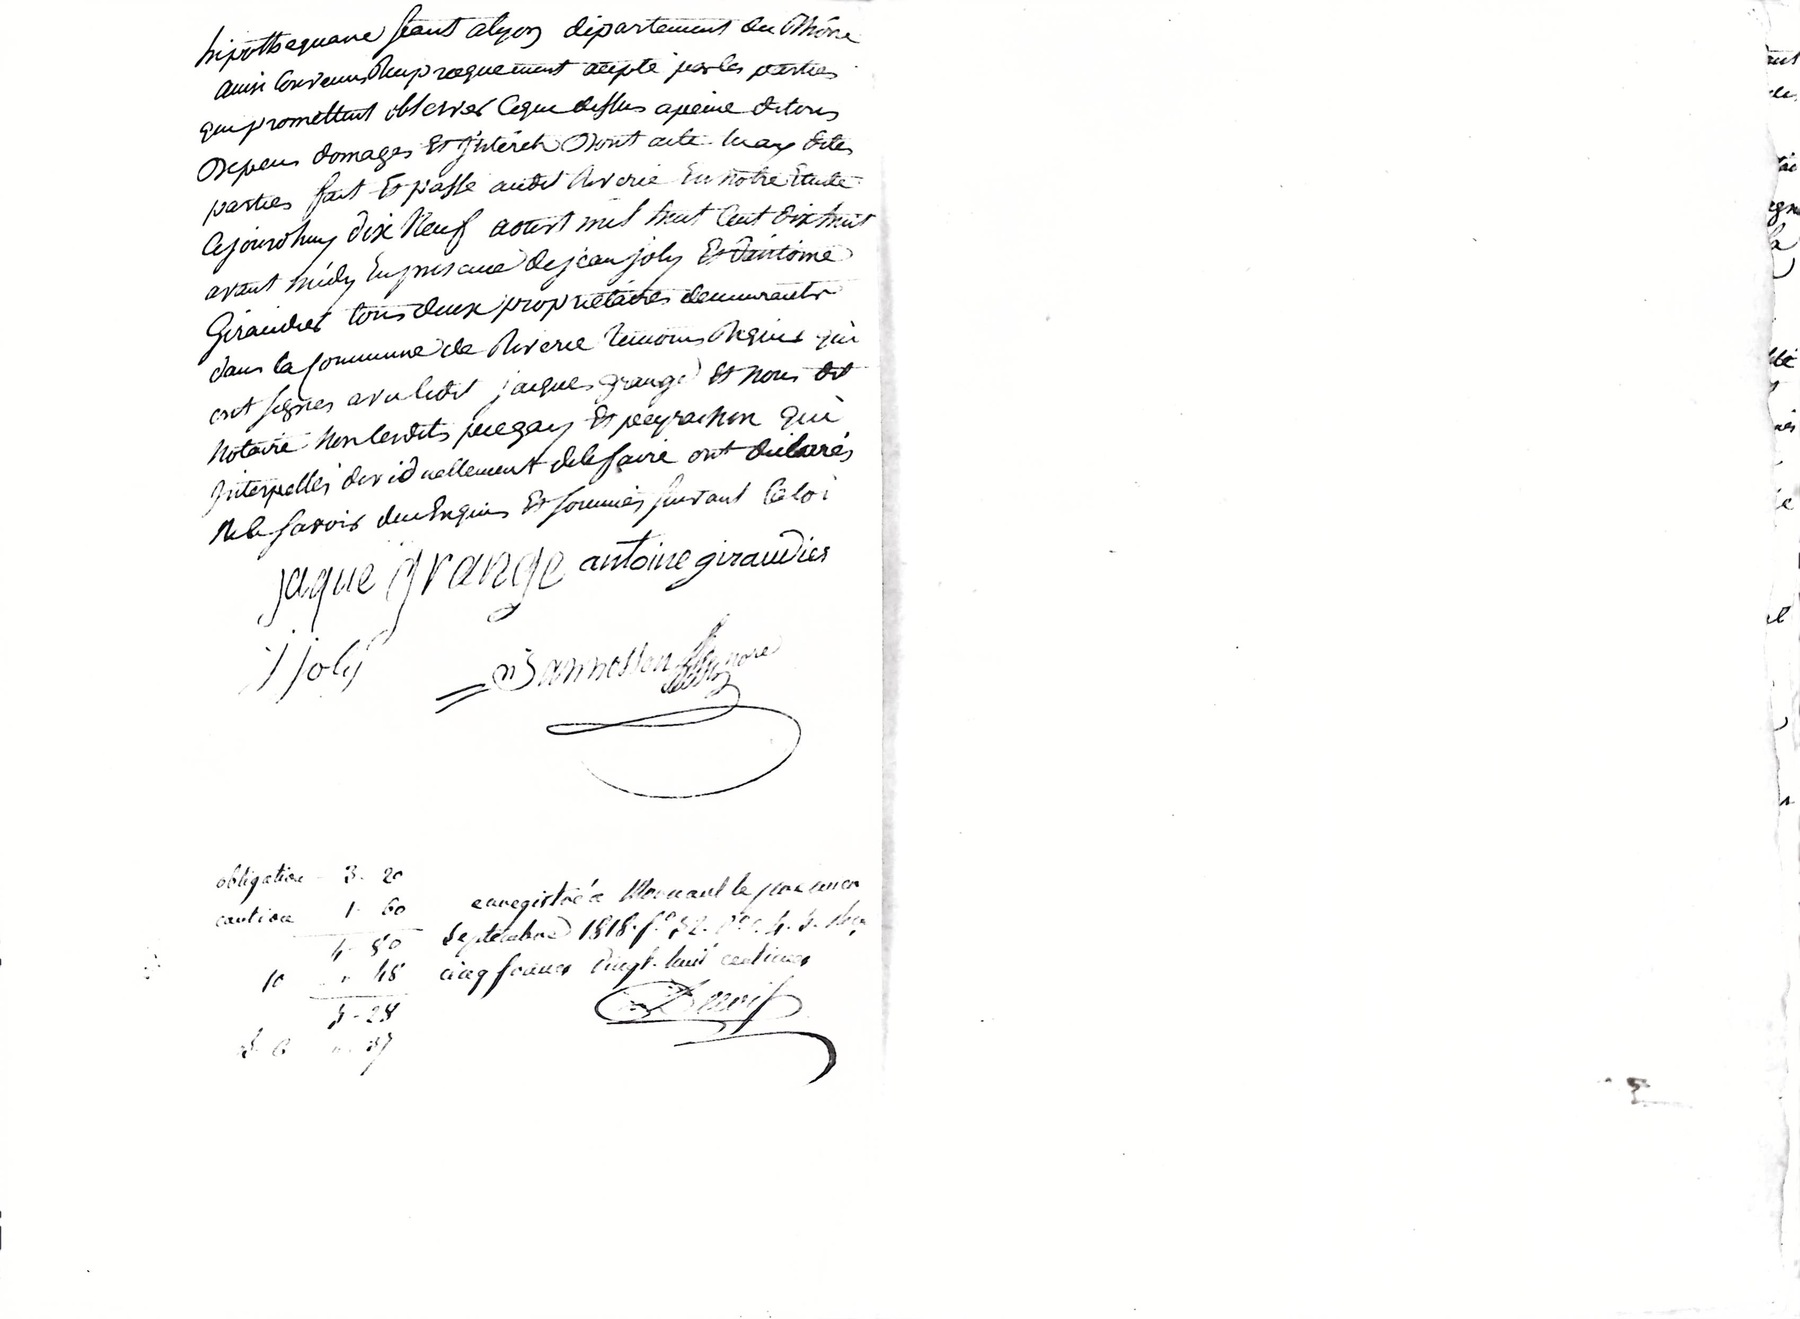 hipothequaire séant alyon département du Rhône
ainsi Convenus Reciproquement accepté par les parties
qui promettent observer Ceque dessus apeine detous
Depens domages Et jnterêts Dont acte lu aux dites
parties fait Et passé audit Riverie En notre Etude
Cejourdhuy dix Neuf aoust mil huit Cent dix huit
avant midy En presance de jean joly Et dantoine
Giraudier tous deux propriétaires demeurants
dans la Commune de Riverie temoins Requis qui
ont signés avec ledit jacques grange Et Nous dit
Notaire Non lesdits pucgay Et peyrachon qui
jnterpellés dividuellement de le faire ont déclarés
Ne le savoir deu Enquis Et sommés suivant la loi
jaque grange antoine giraudier
j joly
not.re
obligation - 3 - 20
caution 1 - 60
4 - 80
10 " 48
5 - 28
enregistré à Mornant le premier
Septembre 1818. f.°
cinq francs vingt-huit centimes